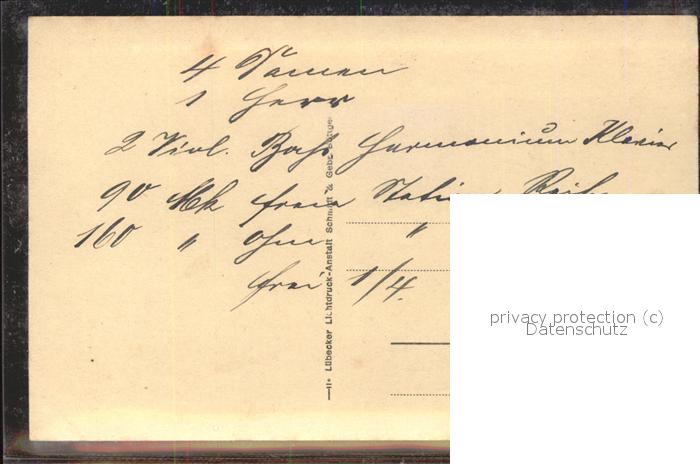 4 Damen
1 Herr
2 Viol. Bass Harmonium Klavier
90 Mk freie Station, Reise
160 " ohne "
frei 1/4.
Lübecker Lichtdruck-Anstalt Schmidt & Gebr.
privacy protection (c)
Datenschutz